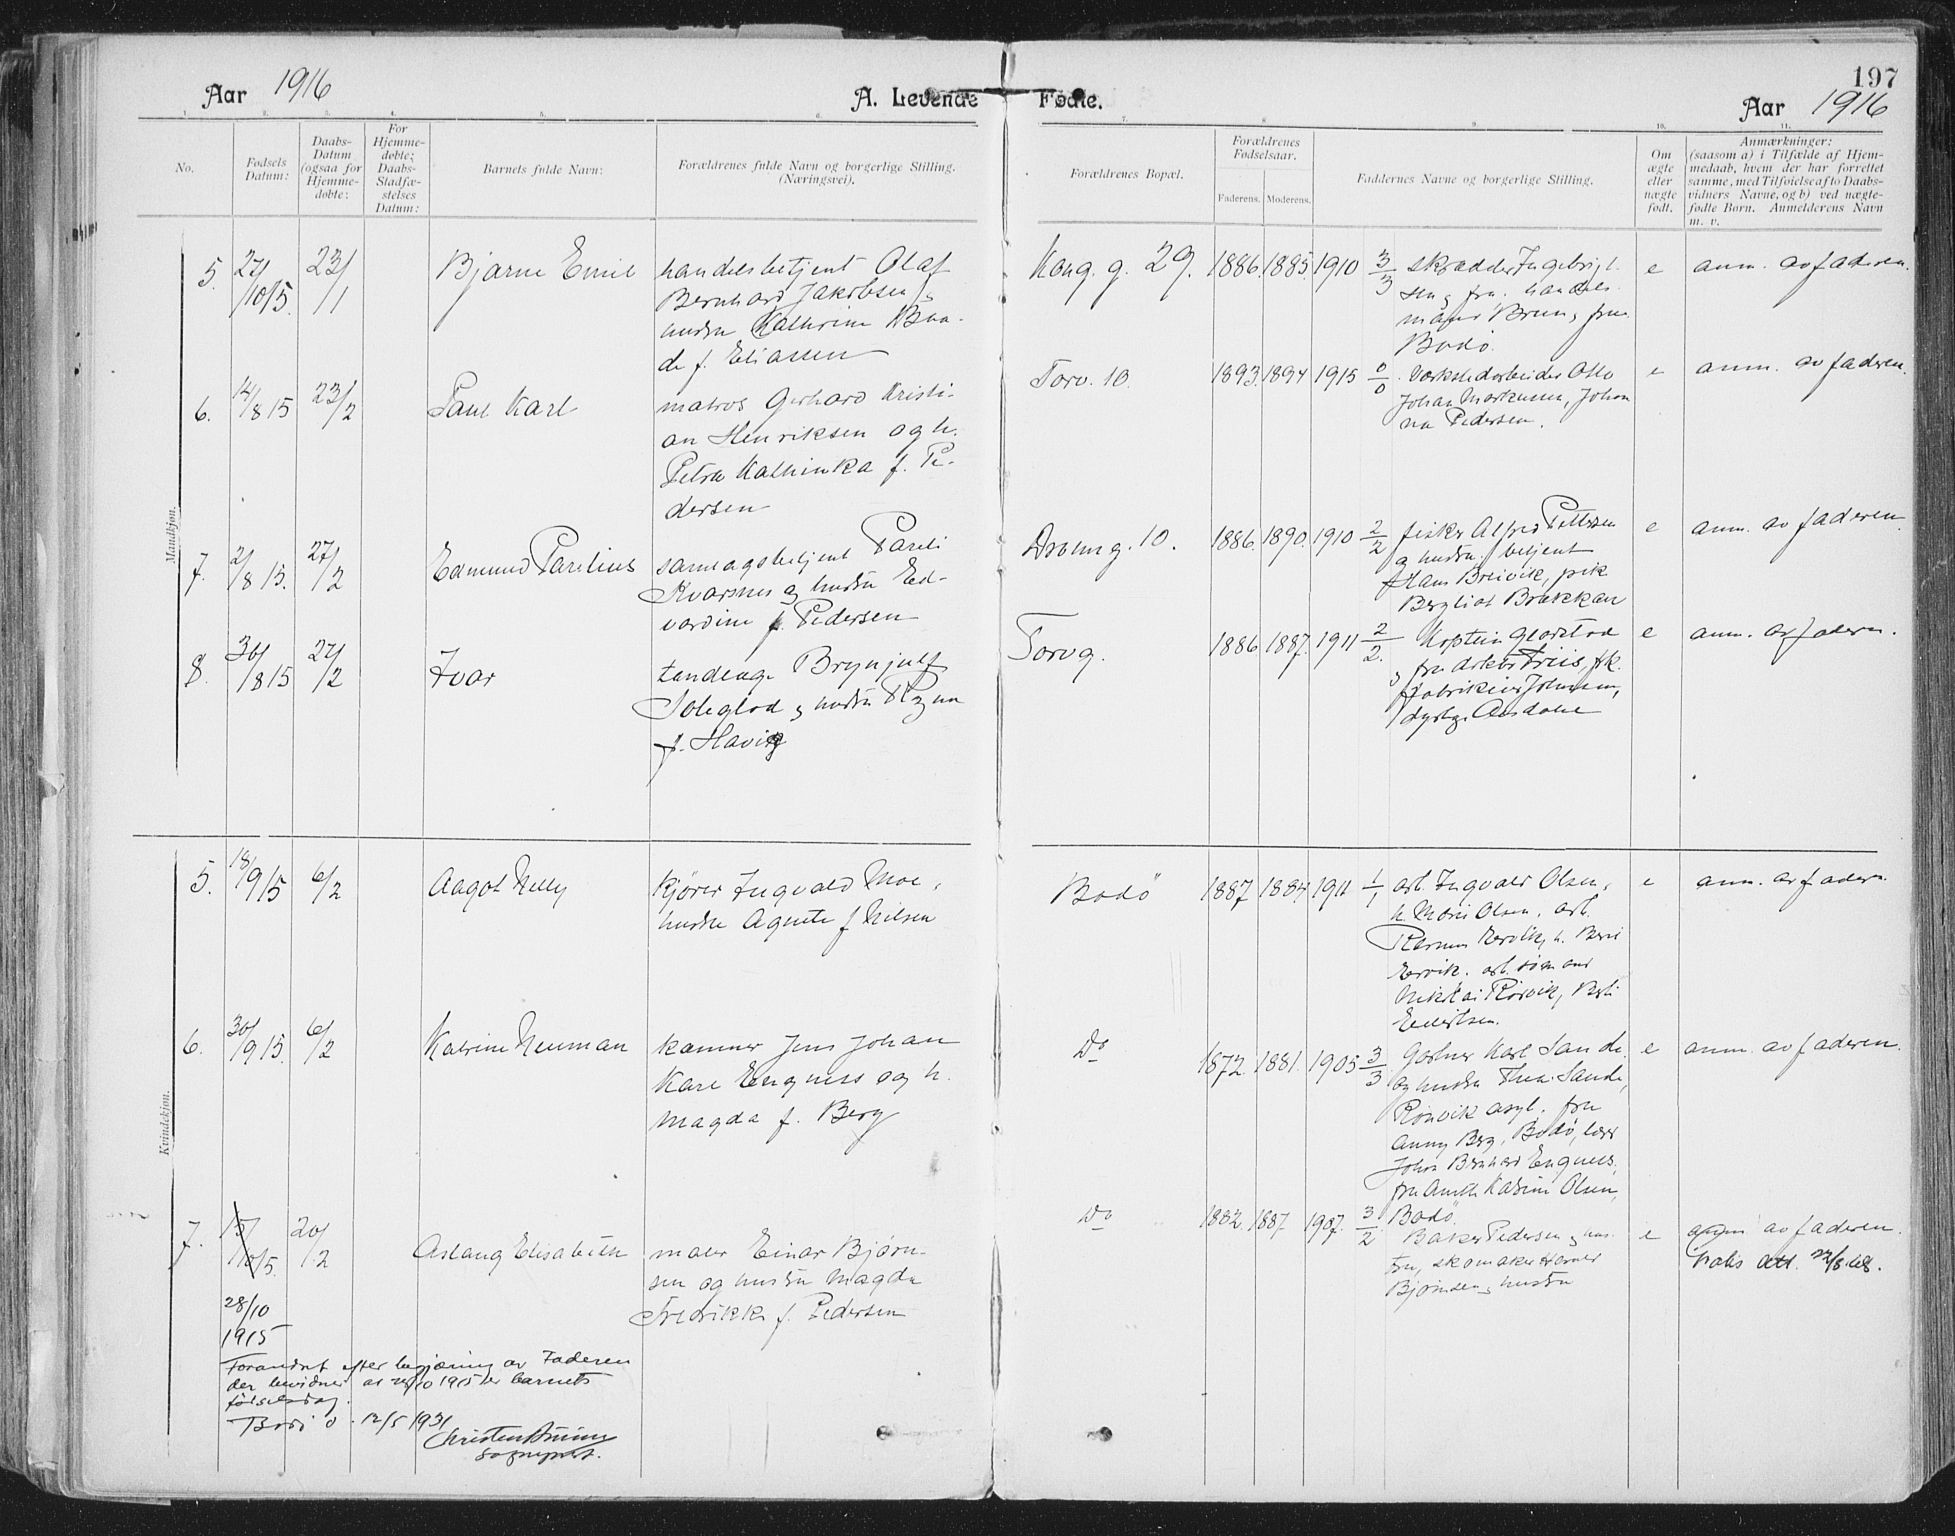 197
Aar 1916
A. Levende Fødte.
Aar 1916
1. 2. 3. 4. 5. 6. 7. 8. 9. 10. 11.
No.
Fødsels Datum:
Daabs-Datum (ogsaa for Hjemme-døbte:
For Hjemme-døbte; Daabs-Stadfæ-stelses Datum:
Barnets fulde Navn:
Forældrenes fulde Navn og borgerlige Stilling.
(Næringsvei).
Forældrenes Bopæl.
Forældrenes Fødselsaar.
Faderens. Moderens.
Faddernes Navne og borgerlige Stilling.
Om ægte eller uægte født.
Anmærkninger:
(saasom a) i Tilfælde af Hjem-
medaab, hvem der har forrettet
samme, med Tilføielse af to Daabs-
vidners Navne, og b) ved uægte-
fødte Børn. Anmelderens Navn
m. v.
Mandkjøn.
5. 27/10 15. 23/1 Bjarne Emil
handelsbetjent Olaf
Bernhard Jakobsen og
hustru Kathrine Baa-
de f. Eliassen
Kong. g. 29. 1886. 1885. 1910 3/3
skrædder Ingebrigt-
sen, fru, handels-
mand Bruun, fru
Bodø.
e anm. av faderen.
6. 14/8 15 23/2 Paul Karl
matros Gerhard Kristi-
an Henriksen og h.
Petra Kathinka f. Pe-
dersen
Torv. 10. 1893. 1894 1915 0/0
Værkstedarbeider Otto
Johan Markussen, Johan
na Pedersen.
e anm. av faderen.
7. 2/8 15. 27/2 Edmund Parelius
betjent Pareli
Kvarsnes og hustru Ed-
vardine f. Pedersen
Dronn g. 10. 1886. 1890. 1910 2/2
fisker Alfred Pettersen
og hustru, betjent
Hans Breivik, pike
Bergliot Brækkan
e anm. av faderen.
8. 30/8 15 27/2 Ivar
tandlæge Brynjulf
Soleglad og hustru Ragna
f. Havig
Torvg. 1886 1887. 1911 2/2.
Kaptein
fru Friis, frk.
Johnsen,
e anm. av faderen.
Kvindekjøn.
5. 18/9 15 6/2 Aagot Nelly
kjører Ingvald Moe,
hustru Agnete f. Nilsen
Bodø 1887 1884 1911 1/1
arb. Ingvald Olsen,
h. Marie Olsen, arb.
Rasmus Kervik, h. Berit
Kervik. arb. sømand
Nikolai Rørvik,
Edvardsen.
e anm. av faderen.
6. 30/9 15. 6/2 Katrine Neuman
Jens Johan
Karl Engness og h.
Magda f. Berg
Do 1872. 1881. 1905 3/3
Gartner Karl Sande
og hustru Thea Sande,
Rønvik asyl. fru
Anny Berg, Bodø, lærer
Johan Bernhard Engness,
fru Katrine Olsen,
Bodø.
e anm. av faderen.
7. 15/10 15. 20/2 Aslaug Elisabeth
maler Einar Bjørn-
sen og hustru Magda
Fredrikke f. Pedersen
Do 1882. 1887. 1907. 3/2
Baker Pedersen og hus-
tru, skomaker
Bjørnsen og hustru
e anm. av faderen.
Daabs att. 22/8.68.
28/10
1915
Forandret efter begjæring av Faderen
der bevidner at 28/10 1915 er barnets
fødselsdag.
Bodø 12/5 1931
Christen Bruun
sogneprest.